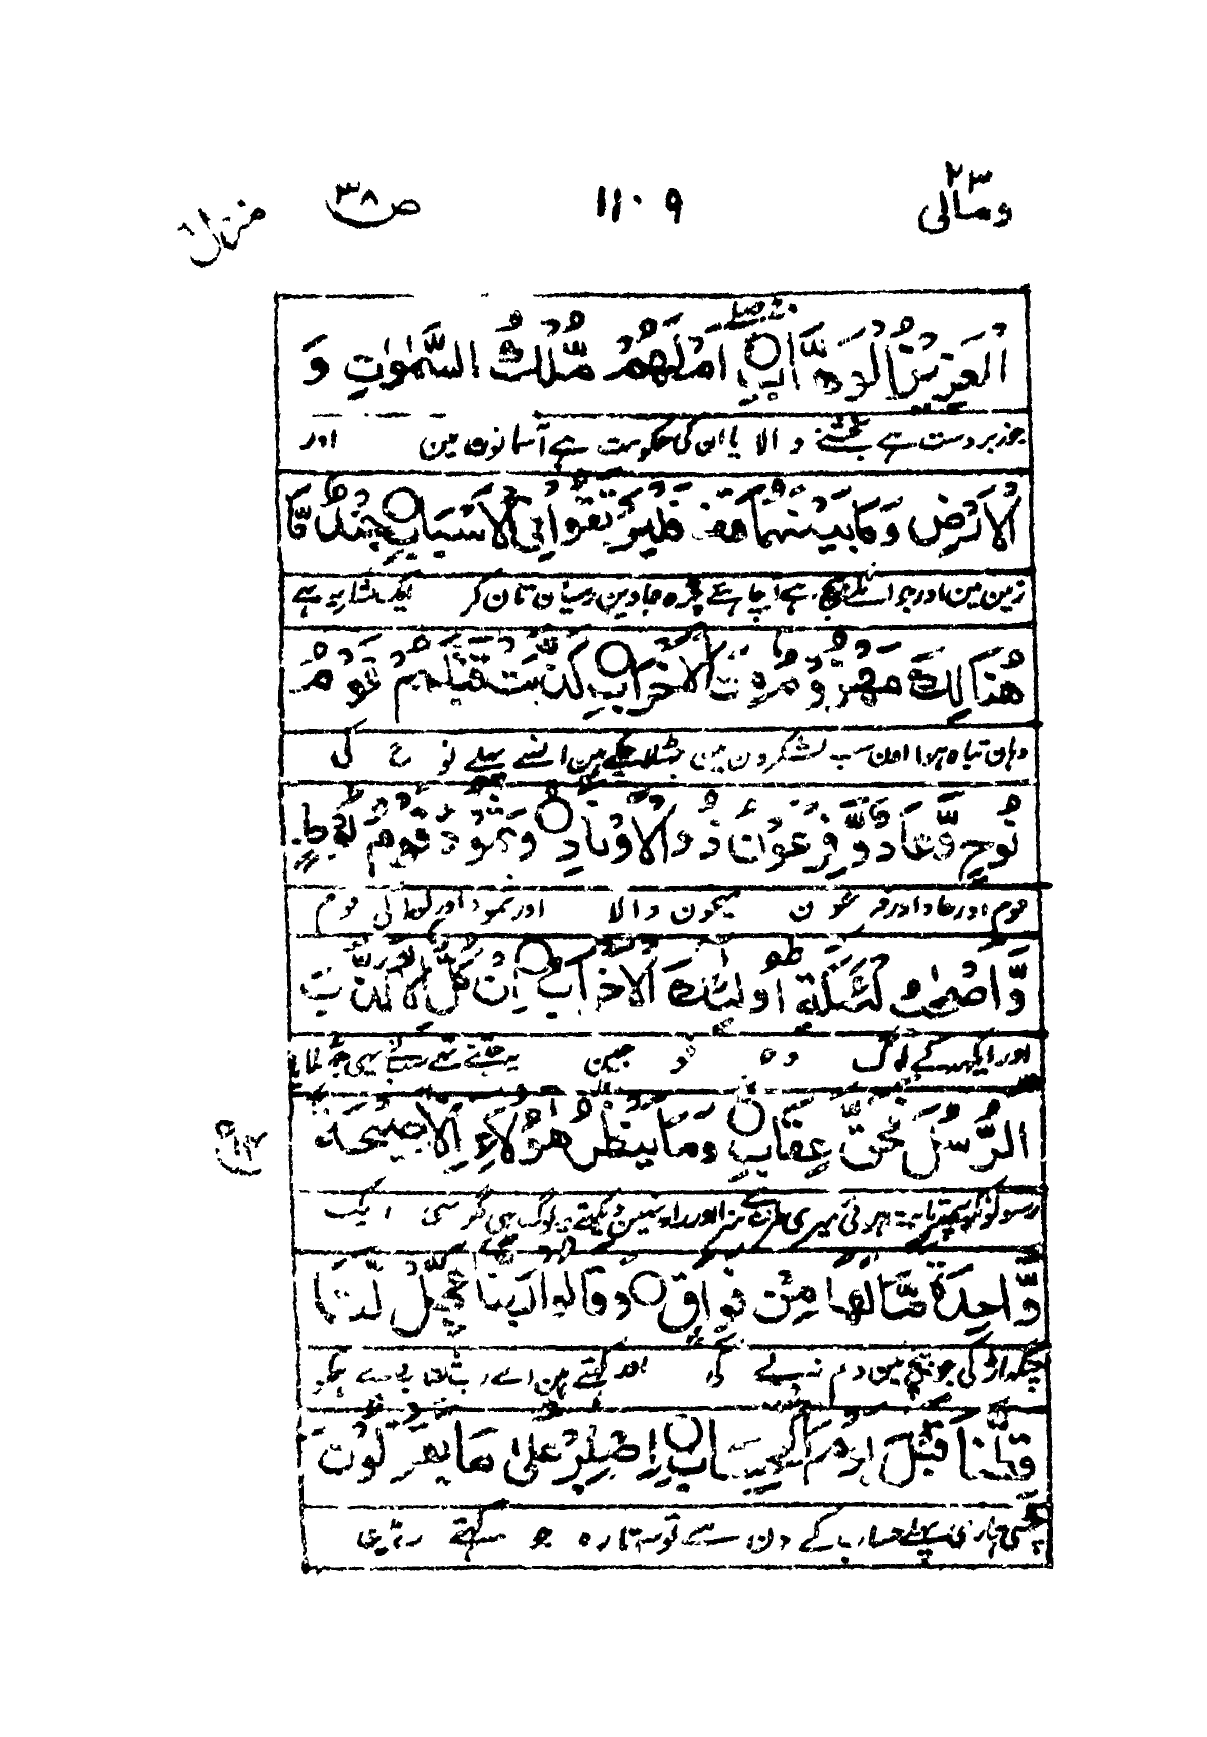 ومالی ۲۳
۱۱۰۹
ص ۳۸
منزل ٦
الْعَزِيزِ الْوَهَّابِ ۝ اَمْ لَهُمْ مُّلْكُ السَّمٰوٰتِ وَ
جو زبردست ہے بخشنے والا یا ان کی حکومت ہے آسمانوں مین اور
الْاَرْضِ وَمَا بَيْنَهُمَا فَلْيَرْتَقُوْا فِى الْاَسْبَابِ ۝ جُنْدٌ مَّا
زمین مین اور جو انکے بیچ ہے اچھا چاہئے چڑہ جاوین رسیان تان کر ایک لشکر یہ ہے
هُنَالِكَ مَهْزُوْمٌ مِّنَ الْاَحْزَابِ ۝ كَذَّبَتْ قَبْلَهُمْ قَوْمُ
وہان تباہ ہوا اون سب لشکرون مین جھٹلا چکے ہین انسے پہلے نوح کی
نُوْحٍ وَّعَادٌ وَّفِرْعَوْنُ ذُو الْاَوْتَادِ ۝ وَثَمُوْدُ وَقَوْمُ لُوْطٍ
قوم اور عاد اور فرعون میخون والا اور ثمود اور لوط کی قوم
وَّاَصْحٰبُ لْئَيْكَةِ اُولٰٓئِكَ الْاَحْزَابُ ۝ اِنْ كُلٌّ اِلَّا كَذَّبَ
اور ایکہ کے لوگ وہ فوجین یہ جتنے تھے سب نے یہی جھٹلایا
الرُّسُلَ فَحَقَّ عِقَابِ ۝ وَمَا يَنْظُرُ هٰٓؤُلَآءِ اِلَّا صَيْحَةً
رسولونکو پھر ثابت ہوئی میری طرف سے سزا اور راہ نہین دیکھتے یہ لوگ یہی مگر ایک
وَّاحِدَةً مَّا لَهَا مِنْ فَوَاقٍ ۝ وَقَالُوْا رَبَّنَا عَجِّلْ لَّنَا
چنگھاڑ کی جو بیچ مین دم نہ لے گی اور کہتے ہین اے رب جلد دے ہمکو
قِطَّنَا قَبْلَ يَوْمِ الْحِسَابِ ۝ اِصْبِرْ عَلٰى مَا يَقُوْلُوْنَ
چٹھی ہماری پہلے حساب کے دن سے تو سہتا رہ جو کہتے رہین